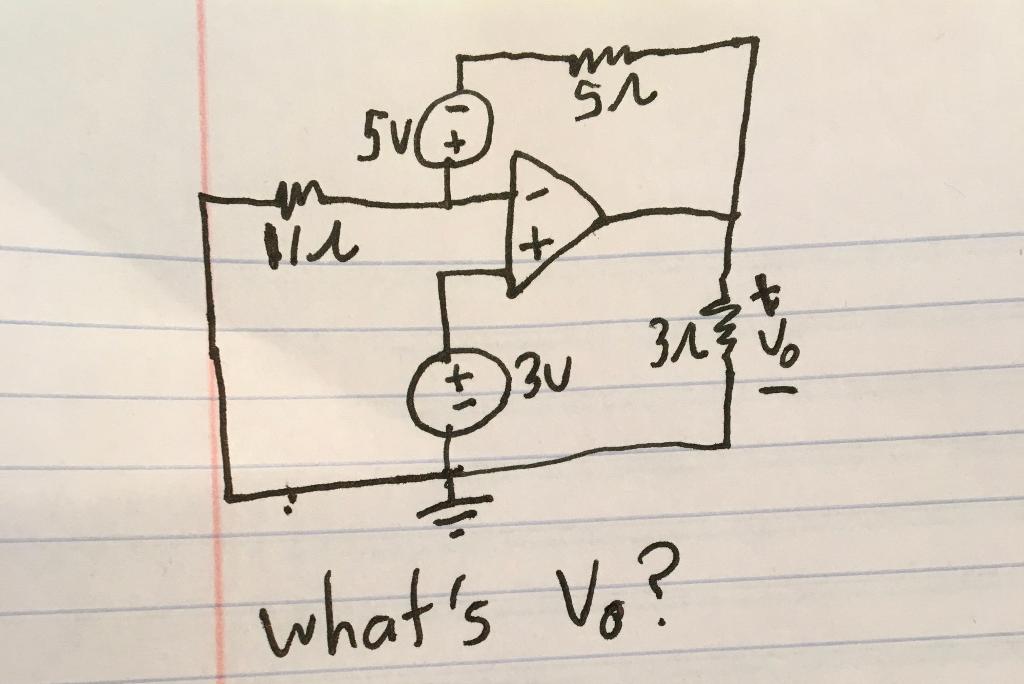 5Ω
5V
-
+
-
+
11Ω
+
-
3V
3Ω
+
V₀
-
what's V₀?